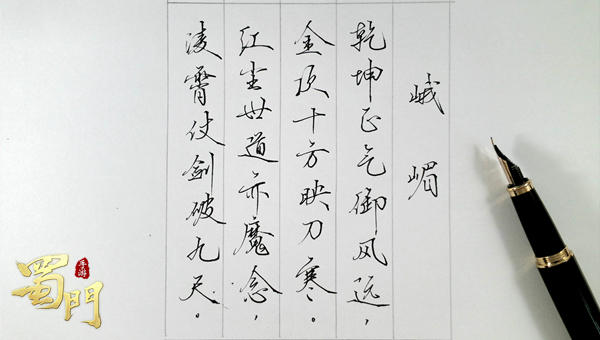 峨嵋
乾坤正气御风远，
金顶十方映刀寒。
红尘世道亦魔念，
凌霄仗剑破九天。
蜀門
手游